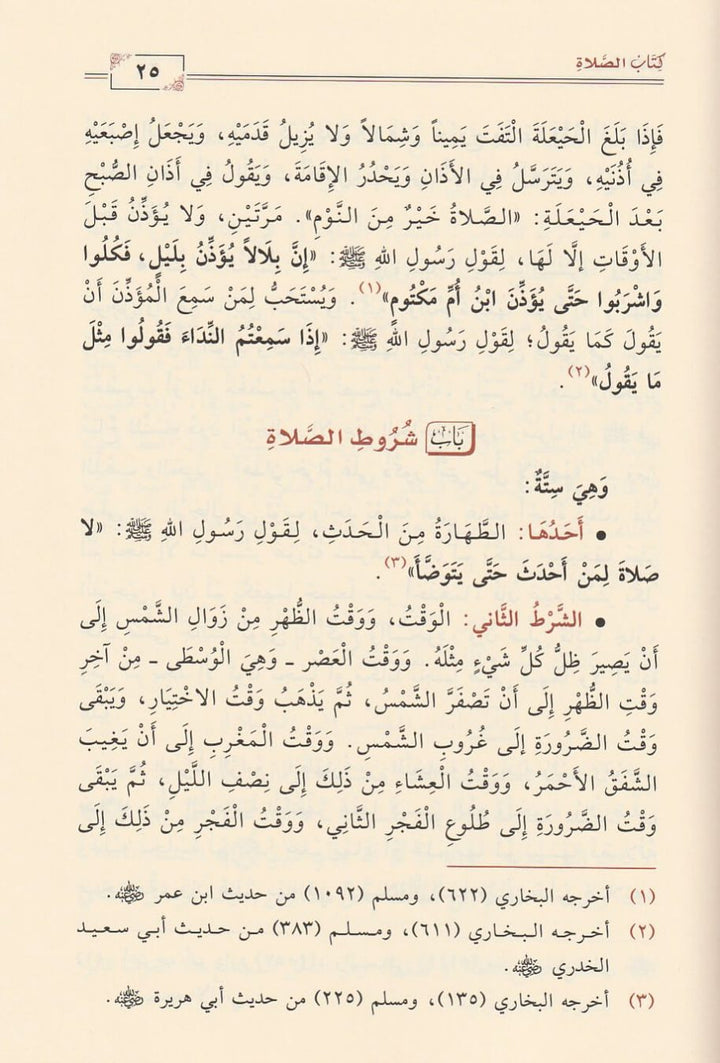 كِتَابُ الصَّلَاةِ
٢٥
فَإِذَا بَلَغَ الْحَيْعَلَةَ الْتَفَتَ يَمِيناً وَشِمَالاً وَلا يُزِيلُ قَدَمَيْهِ، وَيَجْعَلُ إِصْبَعَيْهِ
فِي أُذُنَيْهِ، وَيَتَرَسَّلُ فِي الأَذَانِ وَيَحْدُرُ الإِقَامَةَ، وَيَقُولُ فِي أَذَانِ الصُّبْحِ
بَعْدَ الْحَيْعَلَةِ: «الصَّلاةُ خَيْرٌ مِنَ النَّوْمِ». مَرَّتَيْنِ، وَلا يُؤَذِّنُ قَبْلَ
الأَوْقَاتِ إِلَّا لَهَا، لِقَوْلِ رَسُولِ اللهِ ﷺ: «إِنَّ بِلَالاً يُؤَذِّنُ بِلَيْلٍ، فَكُلُوا
وَاشْرَبُوا حَتَّى يُؤَذِّنَ ابْنُ أُمِّ مَكْتُومٍ»(١). وَيُسْتَحَبُّ لِمَنْ سَمِعَ الْمُؤَذِّنَ أَنْ
يَقُولَ كَمَا يَقُولُ؛ لِقَوْلِ رَسُولِ اللهِ ﷺ: «إِذَا سَمِعْتُمُ النِّدَاءَ فَقُولُوا مِثْلَ
مَا يَقُولُ»(٢).
بَابُ شُرُوطِ الصَّلاةِ
وَهِيَ سِتَّةٌ:
• أَحَدُهَا: الطَّهَارَةُ مِنَ الْحَدَثِ، لِقَوْلِ رَسُولِ اللهِ ﷺ: «لا
صَلاةَ لِمَنْ أَحْدَثَ حَتَّى يَتَوَضَّأَ»(٣).
• الشَّرْطُ الثَّانِي: الْوَقْتُ، وَوَقْتُ الظُّهْرِ مِنْ زَوَالِ الشَّمْسِ إِلَى
أَنْ يَصِيرَ ظِلُّ كُلِّ شَيْءٍ مِثْلَهُ. وَوَقْتُ الْعَصْرِ ـ وَهِيَ الْوُسْطَى ـ مِنْ آخِرِ
وَقْتِ الظُّهْرِ إِلَى أَنْ تَصْفَرَّ الشَّمْسُ، ثُمَّ يَذْهَبُ وَقْتُ الاخْتِيَارِ، وَيَبْقَى
وَقْتُ الضَّرُورَةِ إلَى غُرُوبِ الشَّمْسِ. وَوَقْتُ الْمَغْرِبِ إِلَى أَنْ يَغِيبَ
الشَّفَقُ الأَحْمَرُ، وَوَقْتُ الْعِشَاءِ مِنْ ذَلِكَ إِلَى نِصْفِ اللَّيْلِ، ثُمَّ يَبْقَى
وَقْتُ الضَّرُورَةِ إِلَى طُلُوعِ الْفَجْرِ الثَّانِي، وَوَقْتُ الْفَجْرِ مِنْ ذَلِكَ إِلَى
(١) أخرجه البخاري (٦٢٢)، ومسلم (١٠٩٢) من حديث ابن عمر ﵁.
(٢) أخرجه البخاري (٦١١)، ومسلم (٣٨٣) من حديث أبي سعيد
الخدري ﵁.
(٣) أخرجه البخاري (١٣٥)، ومسلم (٢٢٥) من حديث أبي هريرة ﵁.